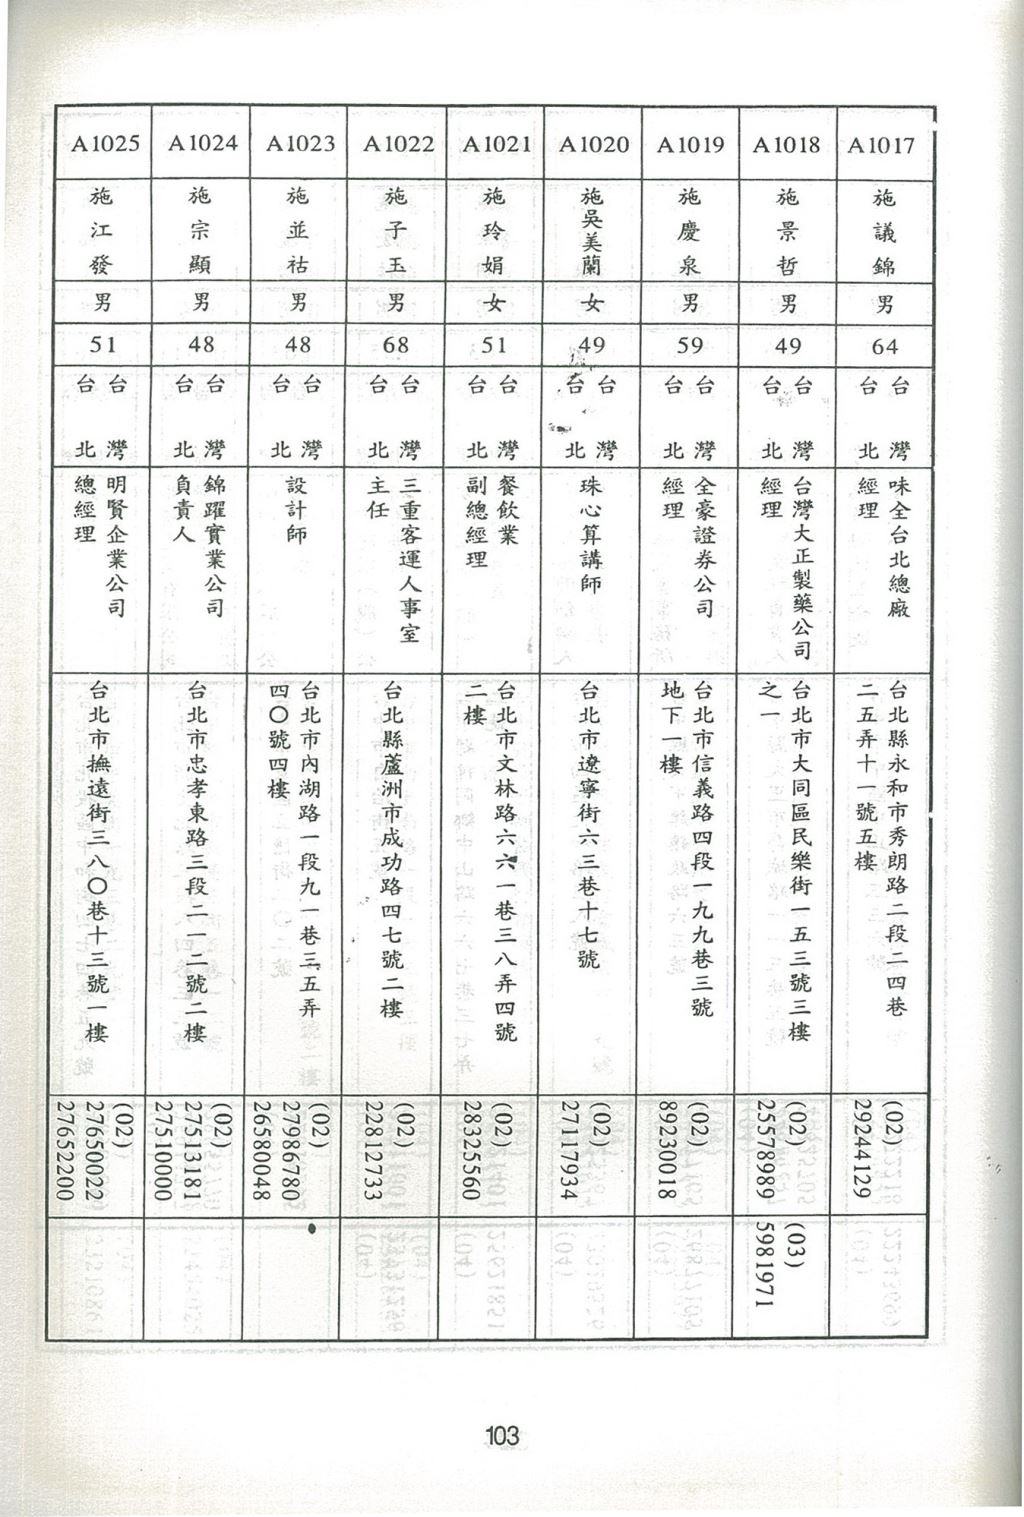 A1017
施議錦
男
64
台灣
台北
味全台北總廠
經理
台北縣永和市秀朗路二段二四巷
二五弄十一號五樓
(02)
29244129
A1018
施景哲
男
49
台灣
台北
台灣大正製藥公司
經理
台北市大同區民樂街一五三號三樓
之一
(02)
25578989
(03)
5981971
A1019
施慶泉
男
59
台灣
台北
全豪證券公司
經理
台北市信義路四段一九九巷三號
地下一樓
(02)
89230018
A1020
施吳美蘭
女
49
台灣
台北
珠心算講師
台北市遼寧街六三巷十七號
(02)
27117934
A1021
施玲娟
女
51
台灣
台北
餐飲業
副總經理
台北市文林路六六一巷三八弄四號
二樓
(02)
28325560
A1022
施子玉
男
68
台灣
台北
三重客運人事室
主任
台北縣蘆洲市成功路四七號二樓
(02)
22812733
A1023
施並祜
男
48
台灣
台北
設計師
台北市內湖路一段九一巷三五弄
四〇號四樓
(02)
27986780
26580048
A1024
施宗顯
男
48
台灣
台北
錦躍實業公司
負責人
台北市忠孝東路三段二一二號二樓
(02)
27513181
27510000
A1025
施江發
男
51
台灣
台北
明賢企業公司
總經理
台北市撫遠街三八〇巷十三號一樓
(02)
27650022
27652200
103